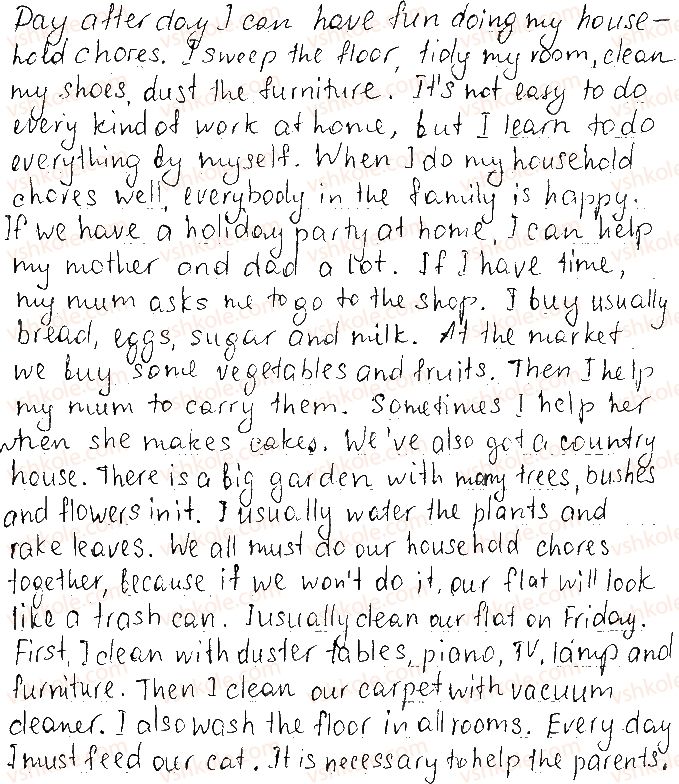 Day after day I can have fun doing my house-
hold chores. I sweep the floor, tidy my room, clean
my shoes, dust the furniture. It's not easy to do
every kind of work at home, but I learn to do
everything by myself. When I do my household
chores well, everybody in the family is happy.
If we have a holiday party at home, I can help
my mother and dad a lot. If I have time,
my mum asks me to go to the shop. I buy usually
bread, eggs, sugar and milk. At the market
we buy some vegetables and fruits. Then I help
my mum to carry them. Sometimes I help her
when she makes cakes. We've also got a country
house. There is a big garden with many trees, bushes
and flowers in it. I usually water the plants and
rake leaves. We all must do our household chores
together, because if we won't do it, our flat will look
like a trash can. I usually clean our flat on Friday.
First, I clean with duster tables, piano, TV, lamp and
furniture. Then I clean our carpet with vacuum
cleaner. I also wash the floor in all rooms. Every day
I must feed our cat. It is necessary to help the parents.